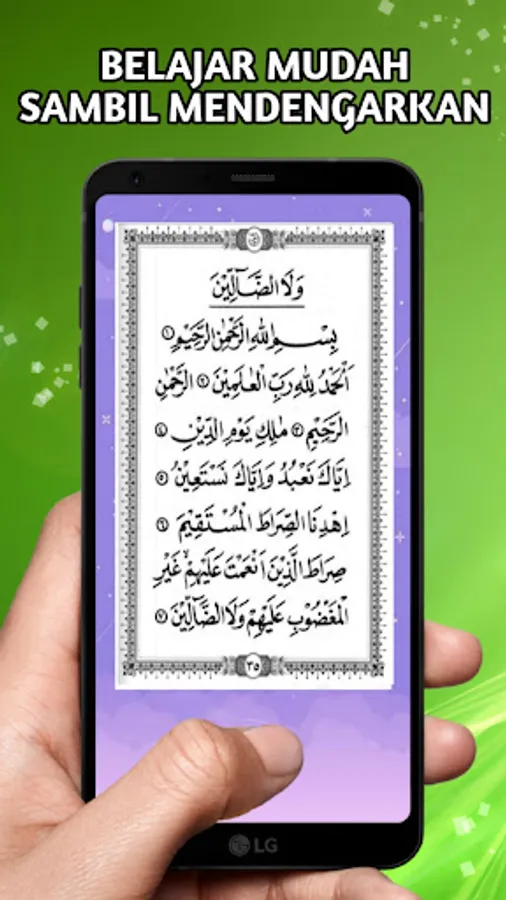 BELAJAR MUDAH
SAMBIL MENDENGARKAN
وَلَا الضَّآلِّيْنَ
بِسْمِ اللهِ الرَّحْمٰنِ الرَّحِيْمِ ١
اَلْحَمْدُ لِلهِ رَبِّ الْعٰلَمِيْنَ ٢ الرَّحْمٰنِ
الرَّحِيْمِ ٣ مٰلِكِ يَوْمِ الدِّيْنِ ٤
اِيَّاكَ نَعْبُدُ وَاِيَّاكَ نَسْتَعِيْنُ ٥
اِهْدِنَا الصِّرَاطَ الْمُسْتَقِيْمَ ٦
صِرَاطَ الَّذِيْنَ اَنْعَمْتَ عَلَيْهِمْ غَيْرِ
الْمَغْضُوْبِ عَلَيْهِمْ وَلَا الضَّآلِّيْنَ ٧
٣٥
LG